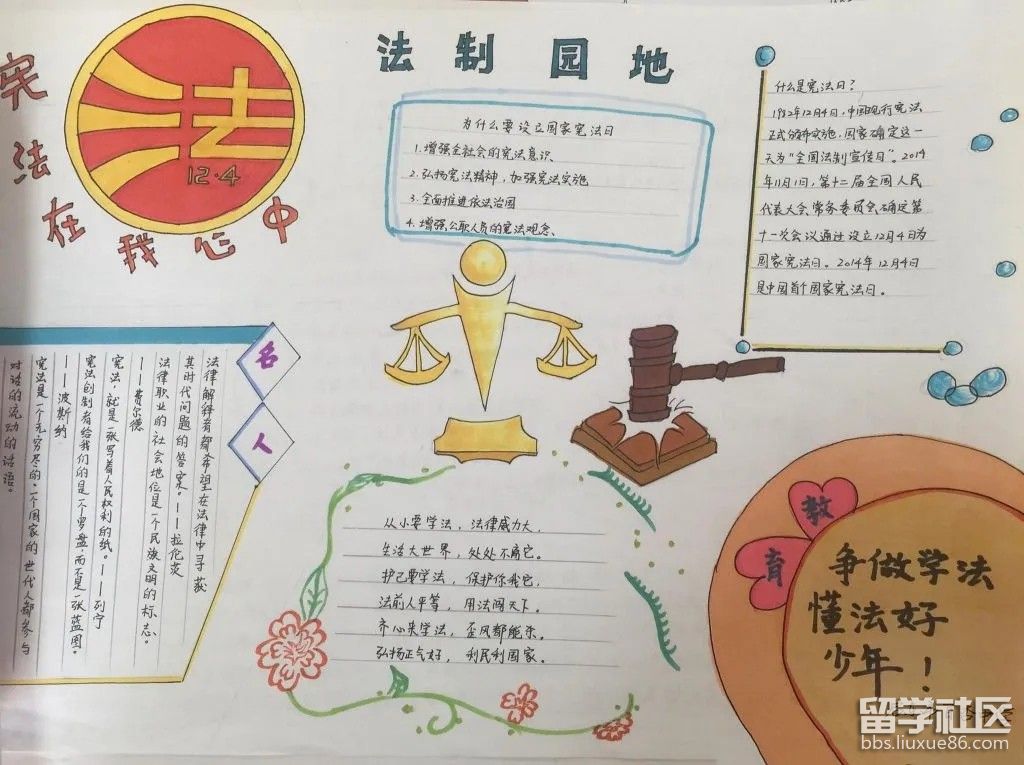 宪法在我心中
法
12·4
法制园地
为什么要设立国家宪法日
1.增强全社会的宪法意识
2.弘扬宪法精神，加强宪法实施
3.全面推进依法治国
4.增强公职人员的宪法观念
什么是宪法日？
1982年12月4日，中国现行宪法
正式公布实施，国家确定这一
天为“全国法制宣传日”。2014
年11月1日，第十二届全国人民
代表大会常务委员会确定第
十一次会议通过设立12月4日为
国家宪法日。2014年12月4日
是中国首个国家宪法日。
名人
法律解释者都希望在法律中寻获
其时代问题的答案。——拉伦茨
法律职业的社会地位是一个民族文明的标志。
——费尔德
宪法，就是一张写着人民权利的纸。——列宁
宪法创制者给我们的是一个罗盘，而不是一张蓝图。
——波斯纳
宪法是一个无穷尽的、一个国家的世代人都参与
对话的流动的话语。
从小要学法，法律威力大，
生活大世界，处处不离它。
护己要学法，保护你我它，
法前人平等，用法闯天下。
齐心来学法，歪风都能杀。
弘扬正气好，利民利国家。
教育
争做学法
懂法好
少年！
留学社区
bbs.liuxue86.com